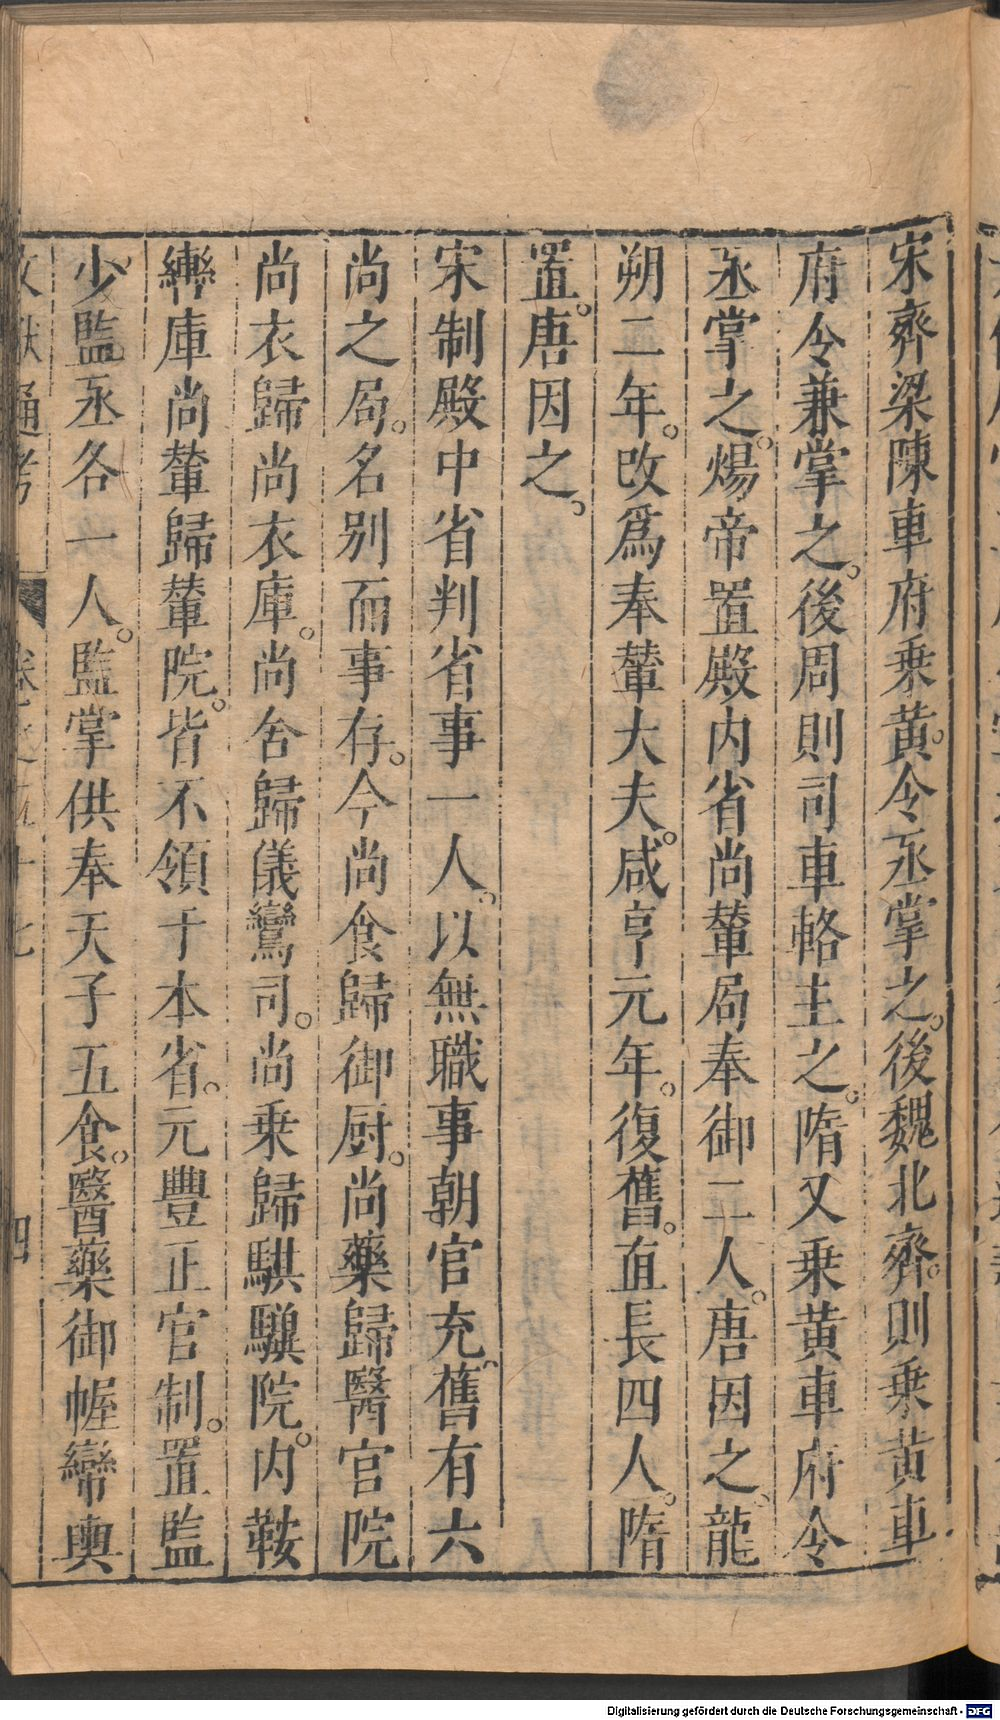 宋齊梁陳車府乗黃令丞掌之後魏北齊則乗黃車
府令兼掌之後周則司車輅主之隋又乗黃車府令
丞掌之煬帝置殿内省尚輦局奉御二人唐因之龍
朔二年改爲奉輦大夫咸亨元年復舊直長四人隋
置唐因之
宋制殿中省判省事一人以無職事朝官充舊有六
尚之局名别而事存今尚食歸御厨尚藥歸醫官院
尚衣歸尚衣庫尚舍歸儀鸞司尚乗歸騏驥院内鞍
轡庫尚輦歸輦院皆不領于本省元豐正官制置監
少監丞各一人監掌供奉天子五食醫藥御幄帟輿
文獻通考
卷之五十七
四
Digitalisierung gefördert durch die Deutsche Forschungsgemeinschaft - DFG